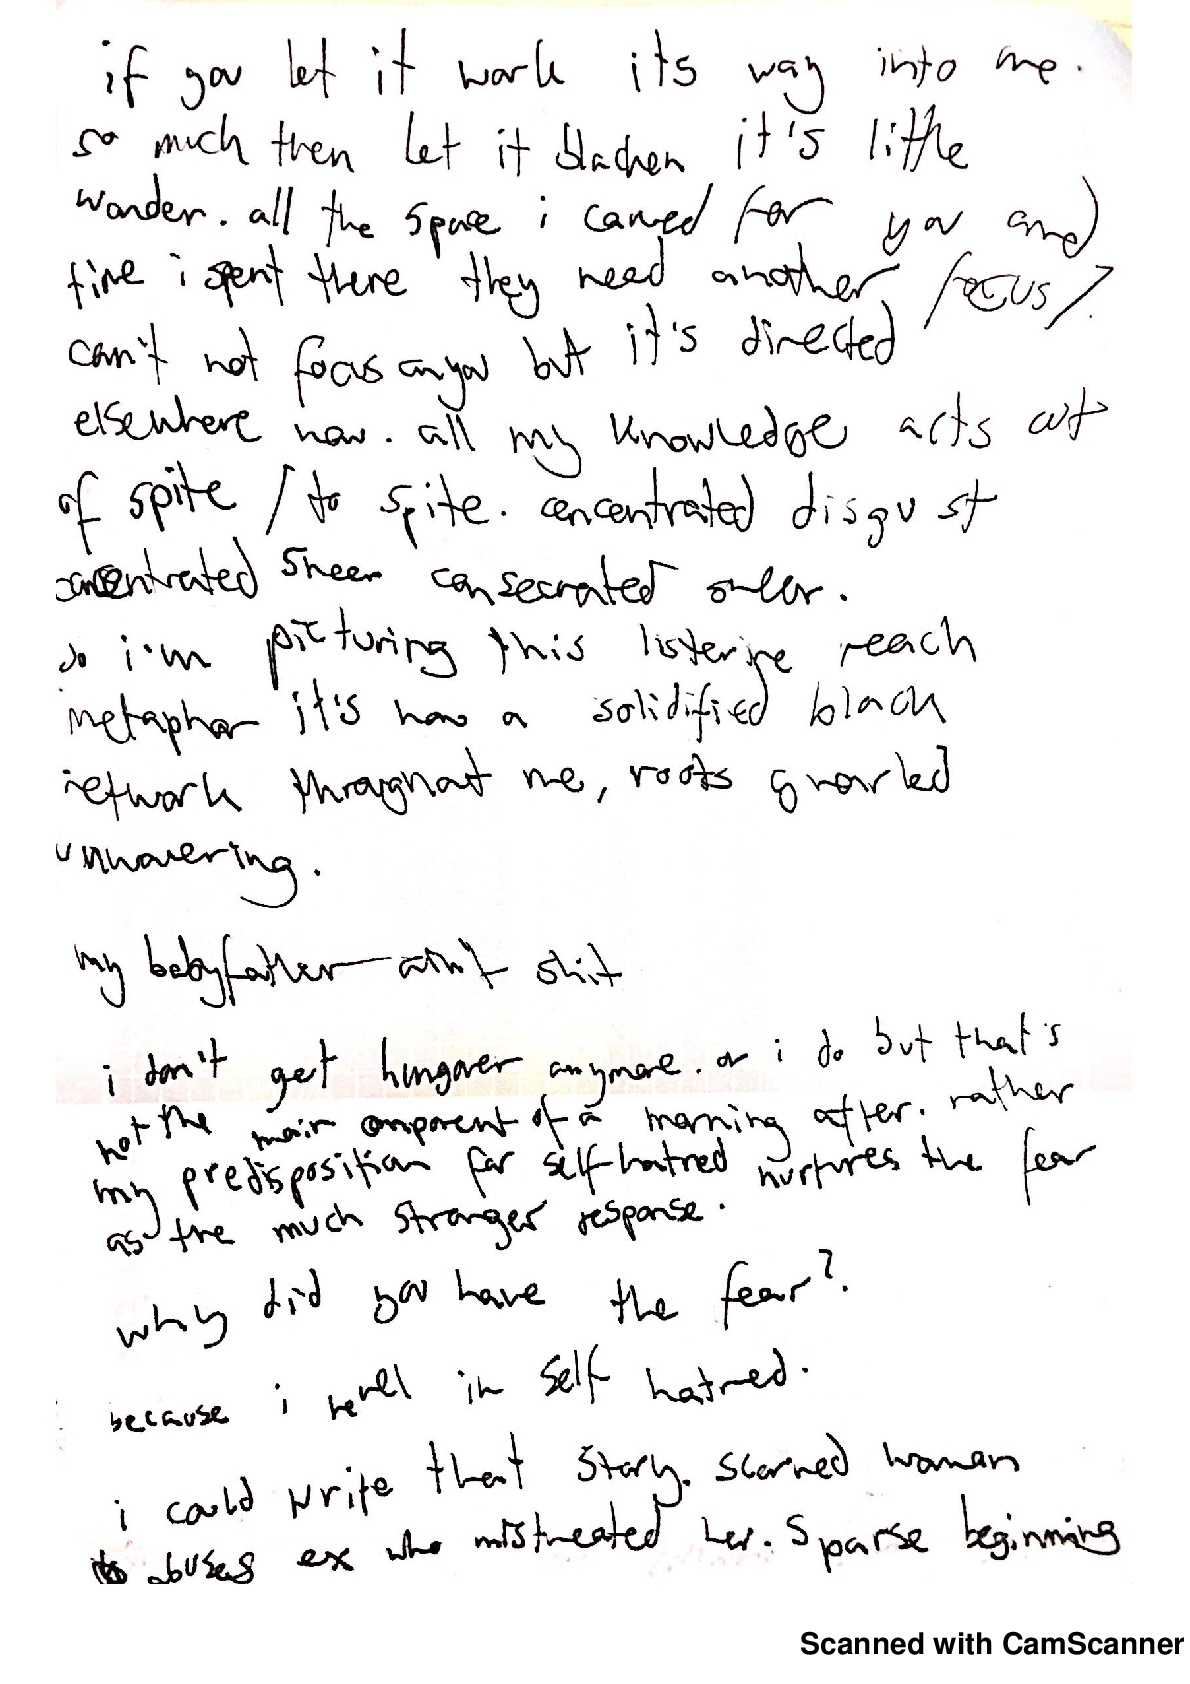 if you let it work its way into me.
so much then let it blacken it's little
wonder. all the space i carved for you and
time i spent there they need another /focus/.
can't not focus on you but it's directed
elsewhere now. all my knowledge acts out
of spite / to spite. concentrated disgust
concentrated sheer consecrated
so i'm picturing this listerine reach
metaphor it's now a solidified black
network throughout me, roots gnarled
unwavering.
my babyfather ain't shit
i don't get hungover anymore. or i do but that's
not the main component of a morning after. rather
my predisposition for self-hatred nurtures the fear
as the much stronger response.
why did you have the fear?.
because i revel in self hatred.
i could write that story. scorned woman
abuses ex who mistreated her. sparse beginning
Scanned with CamScanner